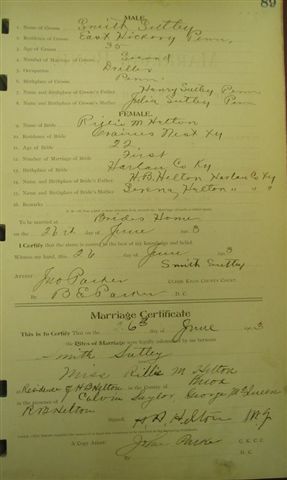 89
MALE.
1. Name of Groom Smith Sutley
2. Residence of Groom East Hickory Penn
3. Age of Groom 35
4. Number of Marriage of Groom Second
5. Occupation Driller
6. Birthplace of Groom Penn
7. Name and Birthplace of Groom's Father Henry Sutley Penn
8. Name and Birthplace of Groom's Mother Julia Sutley Penn
FEMALE.
9. Name of Bride M Helton
10. Residence of Bride Crains Nest Ky
11. Age of Bride 22
12. Number of Marriage of Bride First
13. Birthplace of Bride Harlan Co Ky
14. Name and Birthplace of Bride's Father H.B. Helton Harlan Co Ky
15. Name and Birthplace of Bride's Mother Serena Helton " " "
16. Remarks
To be married at Brides Home
on the 26th day of June 3
I Certify that the above is correct to the best of my knowledge and belief.
Witness my hand, this 26 day of June 3
Smith Sutley
Attest: Jno Parker CLERK KNOX COUNTY COURT.
By B E Parker D. C.
Marriage Certificate
This is to Certify That on the 26 day of June 3
the Rites of Marriage were legally solemnized by me between
Smith Sutley
Miss M Helton
Residence of H B Helton in the County of Knox
in the presence of Calvin Saylor, George McQueen
R B Helton
Signed, Helton
A Copy Attest: John Parker C. K. C. C.
D. C.